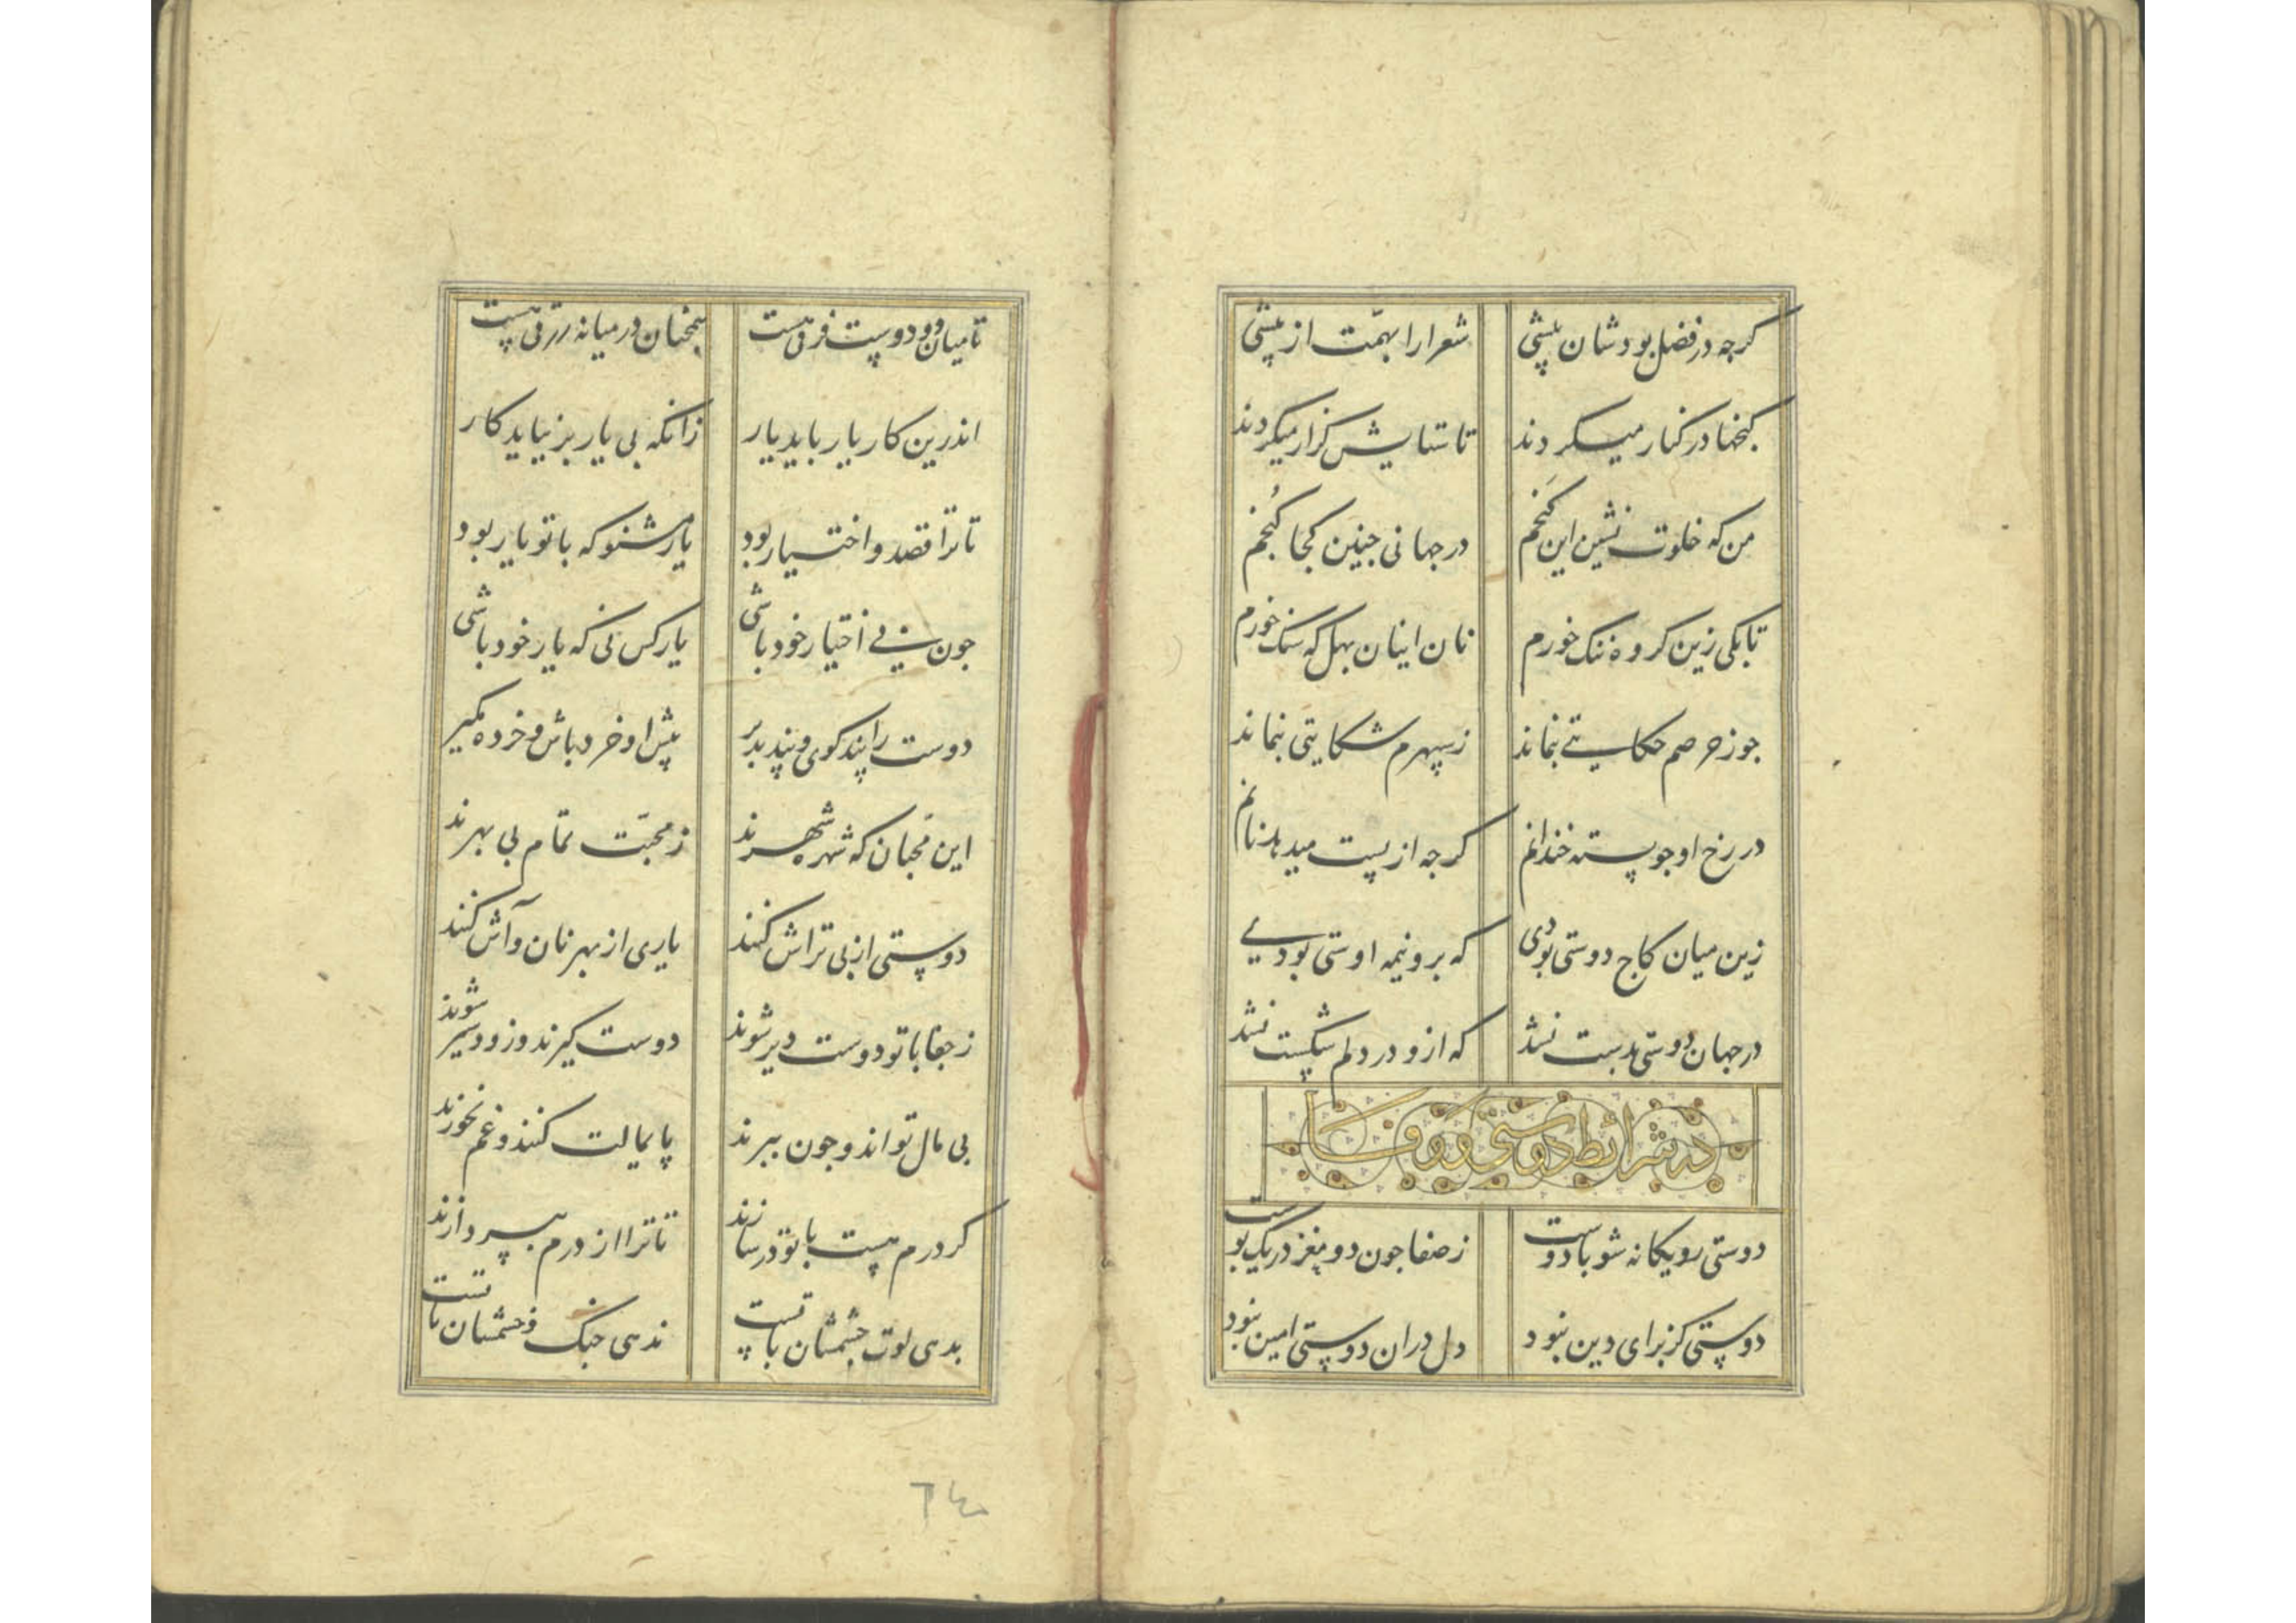 کرچه در فضل بودشان پیشی شعرا را بهمّت از پیشی
کنجها در کنار میکردند تا ستایش کزار میکردند
من که خلوت نشین این کَنجم در جهانی جنین کجا کُنجم
تا بکی زین کروه ننک خورم نان اینان بهل که سنک خورم
جوز حرصم حکایتی نماند ز سپهرم شکایتی نماند
در رخ او جو پسته خندانم کرجه از پست میدهد نانم
زین میان کاج دوستی بودی که برو نیمه اوستی بودی
در جهان دوستی بدست نشد که ازو در دلم شکست نشد
در شرائط دوستی و وفا
دوستی رو یکانه شو با دوست ز صفا جون دو مغز در یک پوست
دوستی کز برای دین نبود دل دران دوستی امین نبود
تا میان دو دوست فرقی هست همجنان در میانه زرقی هست
اندرین کار یار باید یار زانکه بی یار بر نیاید کار
تا ترا قصد و اختیار بود یار مشنو که با تو یار بود
جون نی اختیار خود باشی یار کس نی که یار خود باشی
دوست را پند کوی و پند بذیر پیش او خرد باش و خرده مکیر
این محبان که شهره شهرند ز محبّت تمام بی بهرند
دوستی از پی تراش کنند یاری از بهر نان و آش کنند
ز جفا با تو دوست دیر شوند دوست کیرند و زود سیر شوند
پی مال تواند و جون ببرند پایمالت کنند و غم نخورند
کر درم هست با تو در سازند تا ترا از درم بپردازند
بدهی لوت جشمشان با تست ندهی جنک و خشمشان با تست